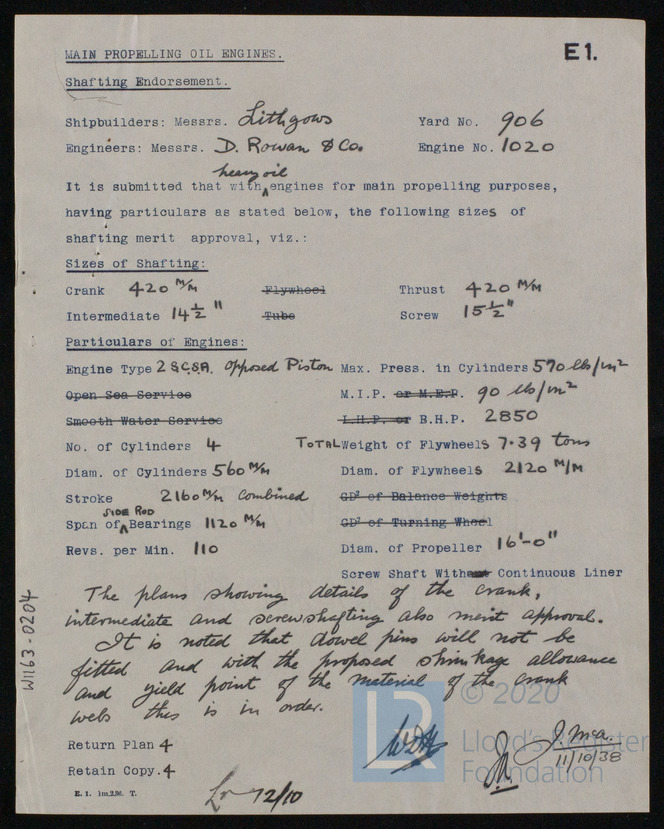 MAIN PROPELLING OIL ENGINES. E1.
Shafting Endorsement.
Shipbuilders: Messrs. Lithgows Yard No. 906
Engineers: Messrs. D. Rowan & Co. Engine No. 1020
heavy oil
It is submitted that with engines for main propelling purposes,
having particulars as stated below, the following sizes of
shafting merit approval, viz.:
Sizes of Shafting:
Crank 420 M/M Flywheel Thrust 420 M/M
Intermediate 14 1/2" Tube Screw 15 1/2"
Particulars of Engines:
Engine Type 2 S.C.S.A. Opposed Piston Max. Press. in Cylinders 570 lbs/in2
Open Sea Service M.I.P. or M.E.P. 90 lbs/in2
Smooth Water Service I.H.P. or B.H.P. 2850
No. of Cylinders 4 TOTAL Weight of Flywheels 7.39 tons
Diam. of Cylinders 560 M/M Diam. of Flywheels 2120 M/M
Stroke 2160 M/M Combined GD² of Balance Weights
SIDE ROD
Span of Bearings 1120 M/M GD² of Turning Wheel
Revs. per Min. 110 Diam. of Propeller 16'-0"
Screw Shaft With Continuous Liner
The plans showing details of the crank,
intermediate and screwshafting also merit approval.
It is noted that dowel pins will not be
fitted and with the proposed shrinkage allowance
and yield point of the material of the crank
webs this is in order.
Return Plan 4
Retain Copy. 4
J. McA.
11/10/38
12/10
E. 1. 1m,2.36. T.
W1163-0204
LR
© 2020
Lloyd's Register
Foundation